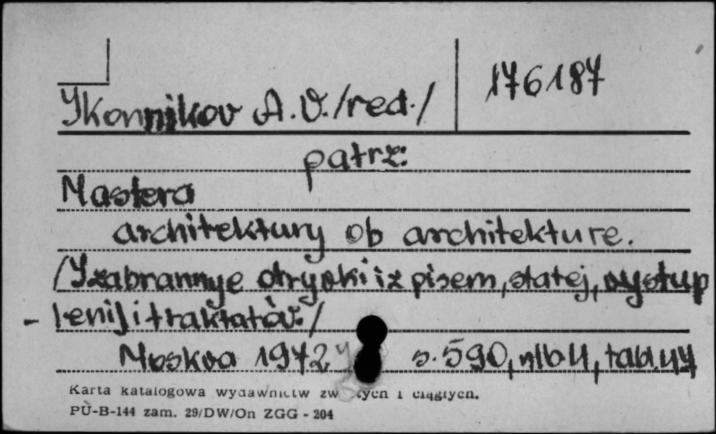 Ikonnikov A.V. /red./ 176187
patrz:
Mastera
architektury ob architekture.
/Izabrannye otryvki iz pisem, statej, vystup
- lenij i traktatov./
Moskva 1972 s. 590, nlb 4, tabl. 44
Karta katalogowa wydawnictw zw tych i ciągłych.
PU-B-144 zam. 29/DW/On ZGG - 204